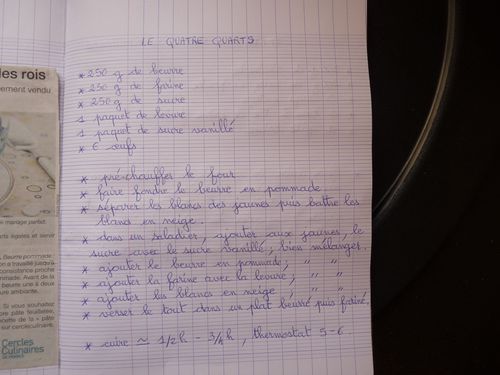 LE QUATRE QUARTS
* 250 g de beurre
* 250 g de farine
* 250 g de sucre
1 paquet de levure
1 paquet de sucre vanillé
* 6 œufs
* pré-chauffer le four
* faire fondre le beurre en pommade.
* séparer les blancs des jaunes puis battre les
blancs en neige.
* dans un saladier, ajouter aux jaunes, le
sucre avec le sucre vanillé, bien mélanger.
* ajouter le beurre en pommade, " "
* ajouter la farine avec la levure, " "
* ajouter les blancs en neige, " "
* verser le tout dans un plat beurré puis fariné,
* cuire ≃ 1/2h - 3/4h, thermostat 5-6
des rois
ement vendu
e manage parfait.
rts égales et servir
. Beurre pommade.
on a travaillé jusqu'à
consistance proche
mmade. Avant de la
beurre une à deux
ure ambiante.
Si vous souhaitez
pâte feuilletée,
cette de la « pâte
sur cerclesculinair.
Cercles
Culinaires